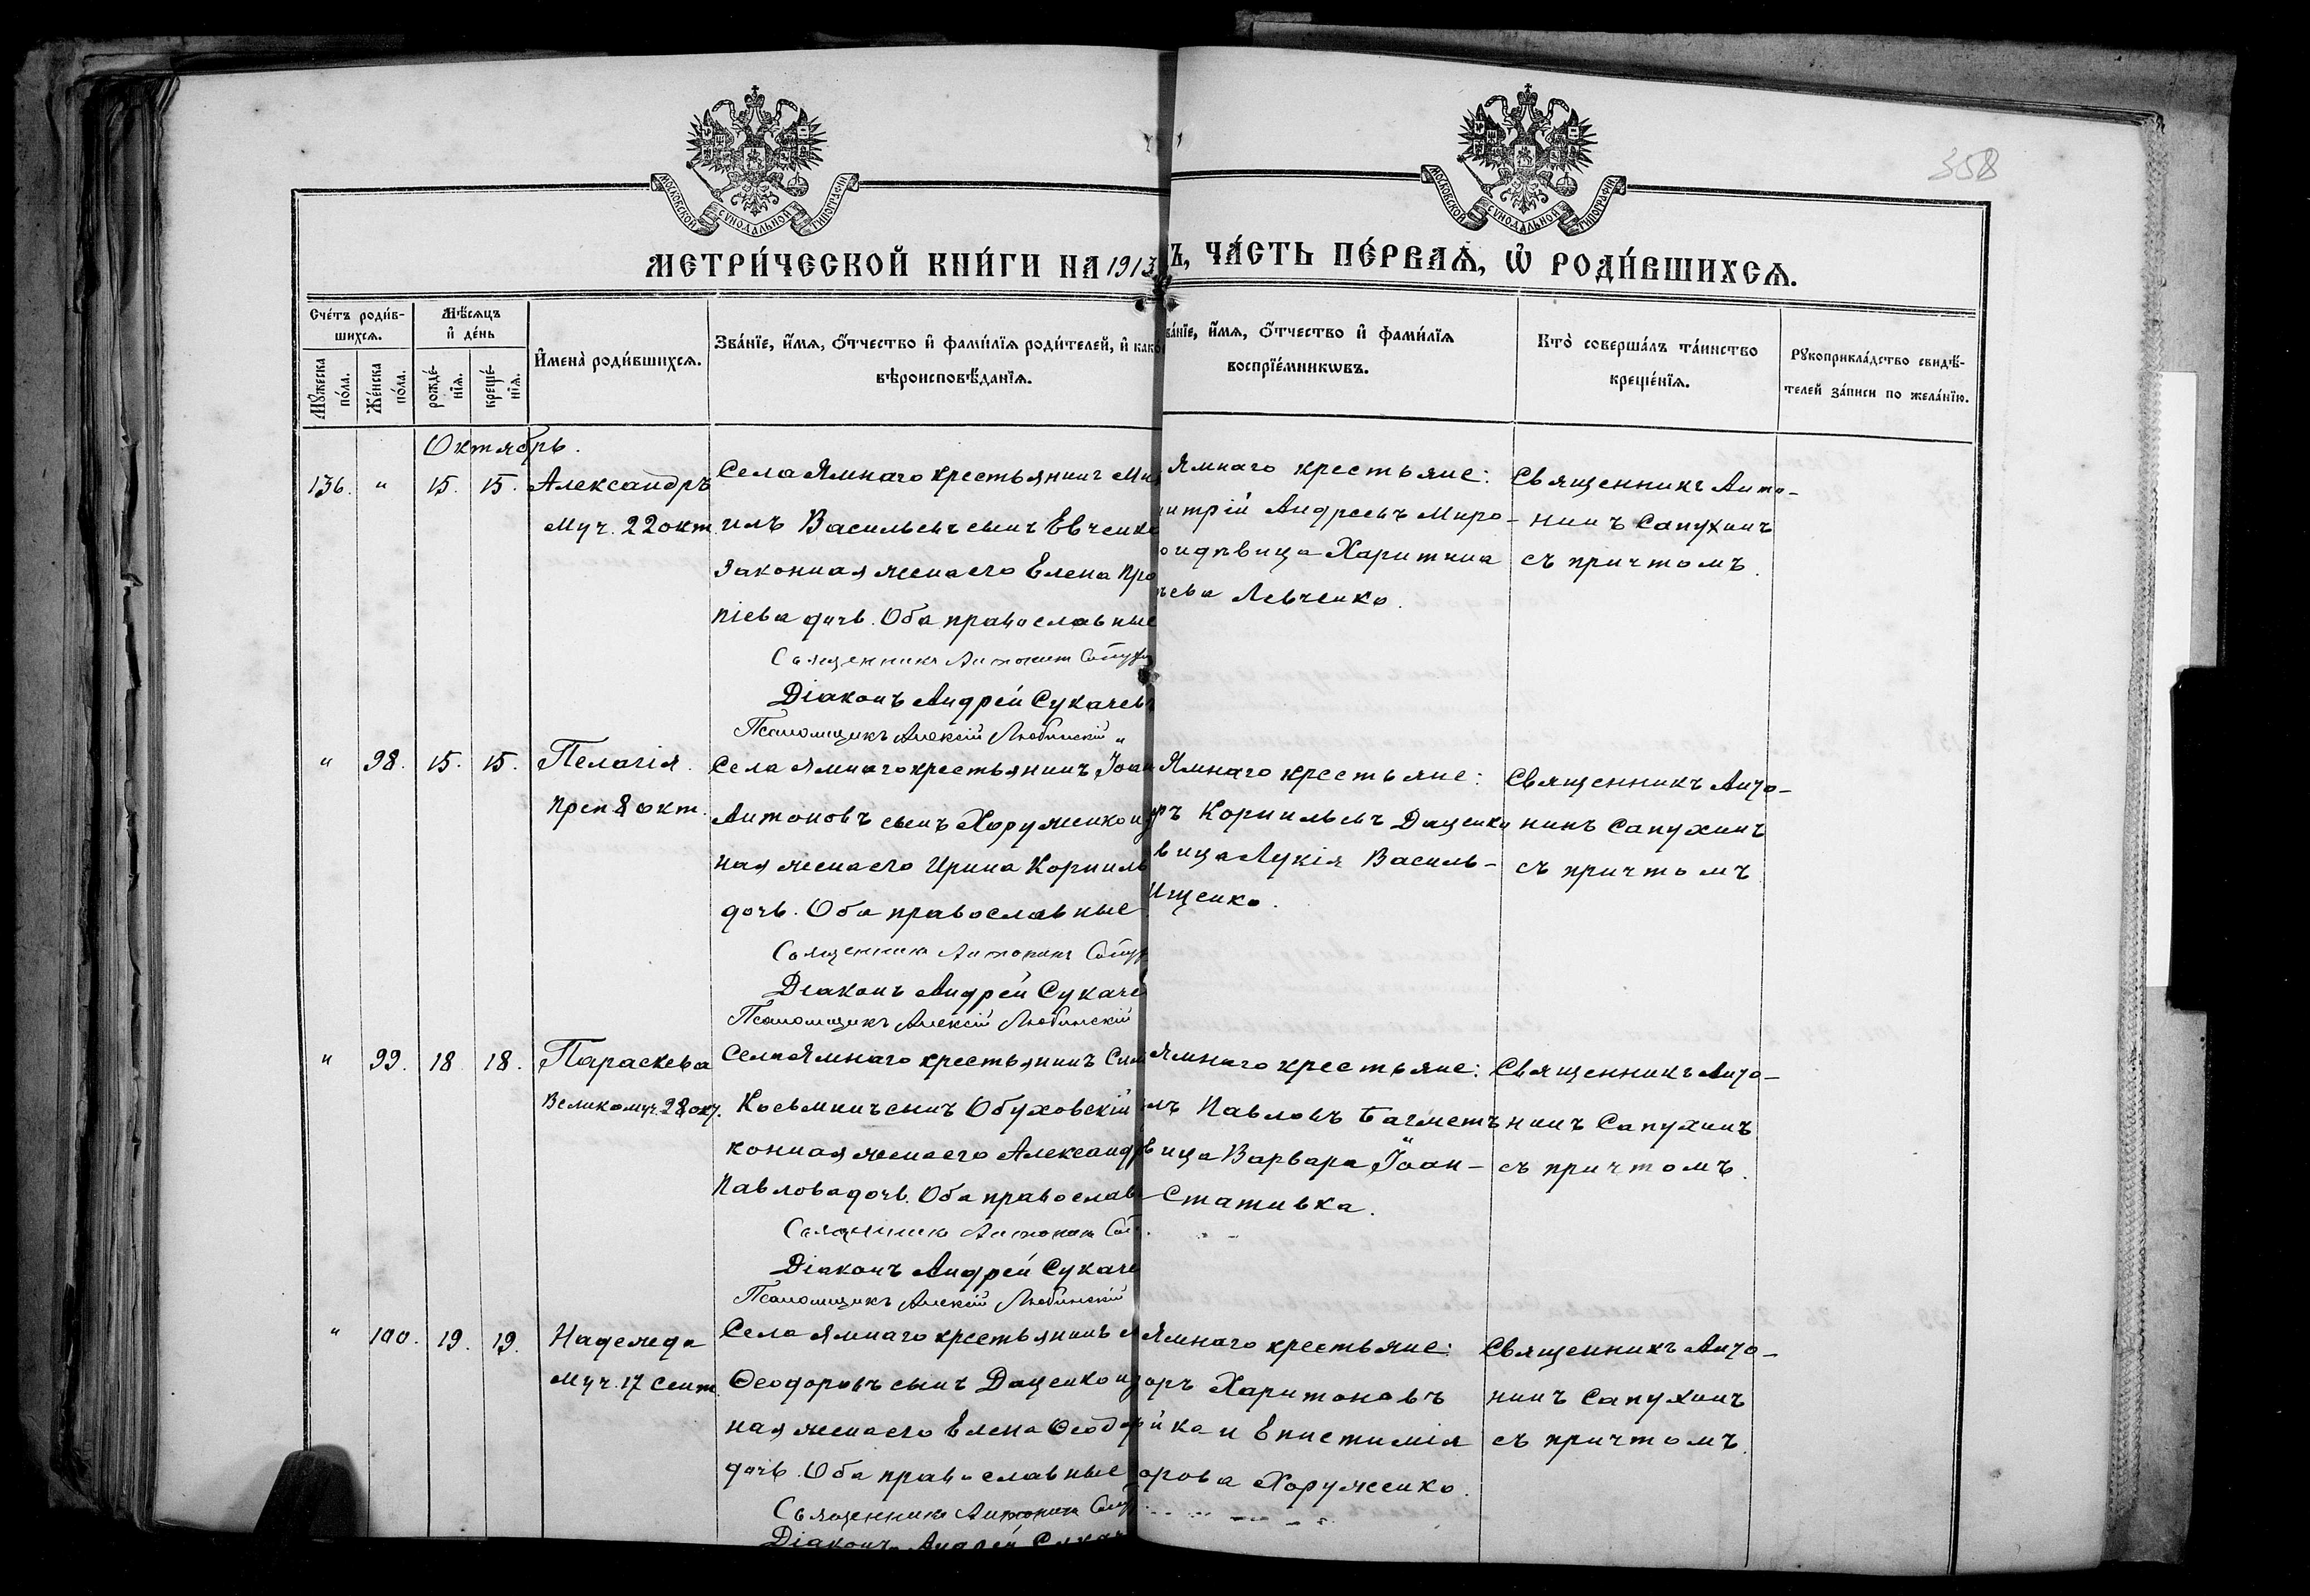 358
МОСКОВСКОЙ СѴНОДАЛЬНОЙ ТИПОГРАФІИ
МОСКОВСКОЙ СѴНОДАЛЬНОЙ ТИПОГРАФІИ
МЕТРИ́ЧЕСКОЙ КНИ́ГИ НА 1913
Ъ, ЧА́СТЬ ПЕ́РВАѦ, Ѽ РОДИ́ВШИХСѦ.
Сче́тъ роди́в-
шихсѧ.
Мꙋжеска по́ла.
Же́нска по́ла.
Мѣ́сѧцъ
и҆ де́нь
рожде́-
нїѧ.
креще́-
нїѧ.
И҆мена̀ роди́вшихсѧ.
Зва́нїе, и҆́мѧ, ѻ҆́тчество и҆ фами́лїѧ роди́телей, и҆ како́
вѣроисповѣ́данїѧ.
ва́нїе, и҆́мѧ, ѻ҆́тчество и҆ фами́лїѧ
воспрїе́мникѡвъ.
Кто̀ соверша́лъ та́инство
креще́нїѧ.
Рꙋкоприкла́дство свидѣ́-
телей за́писи по жела́нїю.
Октябрь.
136. " 15. 15. Александръ
Муч. 22 окт.
Села Ямнаго крестьянинъ Ми
илъ Васильевъ сынъ Евченко
законная жена его Елена Про
піева дочь. Оба православные
Священникъ Антонинъ Сапух
Діаконъ Андрей Сукачевъ
Псаломщикъ Алексій Любинскій
Ямнаго крестьяне:
итрій Андреевъ Миро-
о и дѣвица Харитина
ьева Левченко.
Священникъ Анто-
нинъ Сапухинъ
съ причтомъ.
" 98. 15. 15. Пелагія.
Преп 8 окт.
Села Ямнаго крестьянинъ Іоан
Антоновъ сынъ Хоруженко и
ная жена его Ирина Корниль
дочь. Оба православные
Священникъ Антонинъ Сапух
Діаконъ Андрей Сукаче
Псаломщикъ Алексій Любинскій
Ямнаго крестьяне:
ръ Корнильевъ Даценко
вица Лукія Василь-
Ищенко.
Священникъ Анто-
нинъ Сапухинъ
съ причтомъ
" 99. 18 18. Параскева
Великомуч. 28 окт.
Села Ямнаго крестьянинъ Сим
Косьминъ сынъ Обуховскій
конная жена его Александр
Павлова дочь. Оба православ
Священникъ Антонинъ Сап
Діаконъ Андрей Сукаче
Псаломщикъ Алексій Любинскій
Ямнаго крестьяне:
лъ Павловъ Багметъ
вица Варвара Іоан-
Стативка.
Священникъ Анто-
нинъ Сапухинъ
съ причтомъ.
" 100. 19. 19. Надежда
Муч. 17 Сент.
Села Ямнаго крестьянинъ
Ѳеодоровъ сынъ Даценко и
ная жена его Елена Ѳеодор
дочь. Оба православные
Священникъ Антонинъ Сапух
Діаконъ Андрей Сукач
Ямнаго крестьяне:
оръ Харитоновъ
йка и Епистимія
орова Хоруженко.
Священникъ Анто-
нинъ Сапухинъ
съ причтомъ.